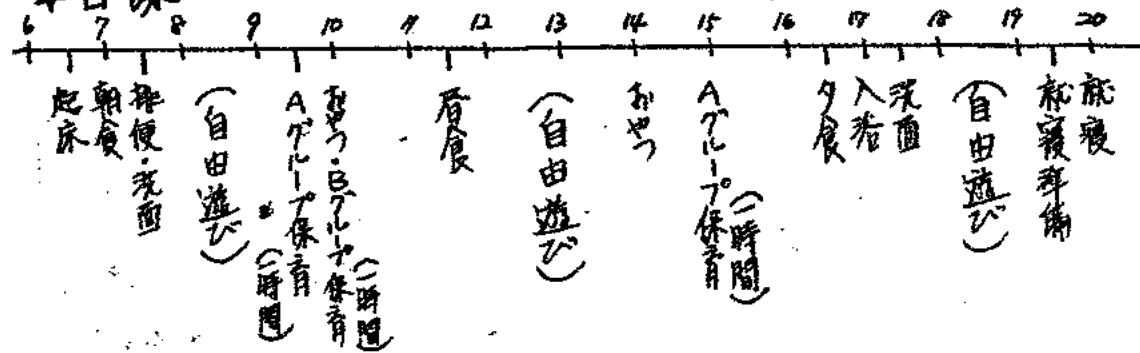 6 7 8 9 10 11 12 13 14 15 16 17 18 19 20
起床
朝食
排便・洗面
(自由遊び)
Aグループ保育
(一時間)
おやつ・Bグループ保育
(一時間)
昼食
(自由遊び)
おやつ
Aグループ保育
(一時間)
夕食
入浴
洗面
(自由遊び)
就寝準備
就寝